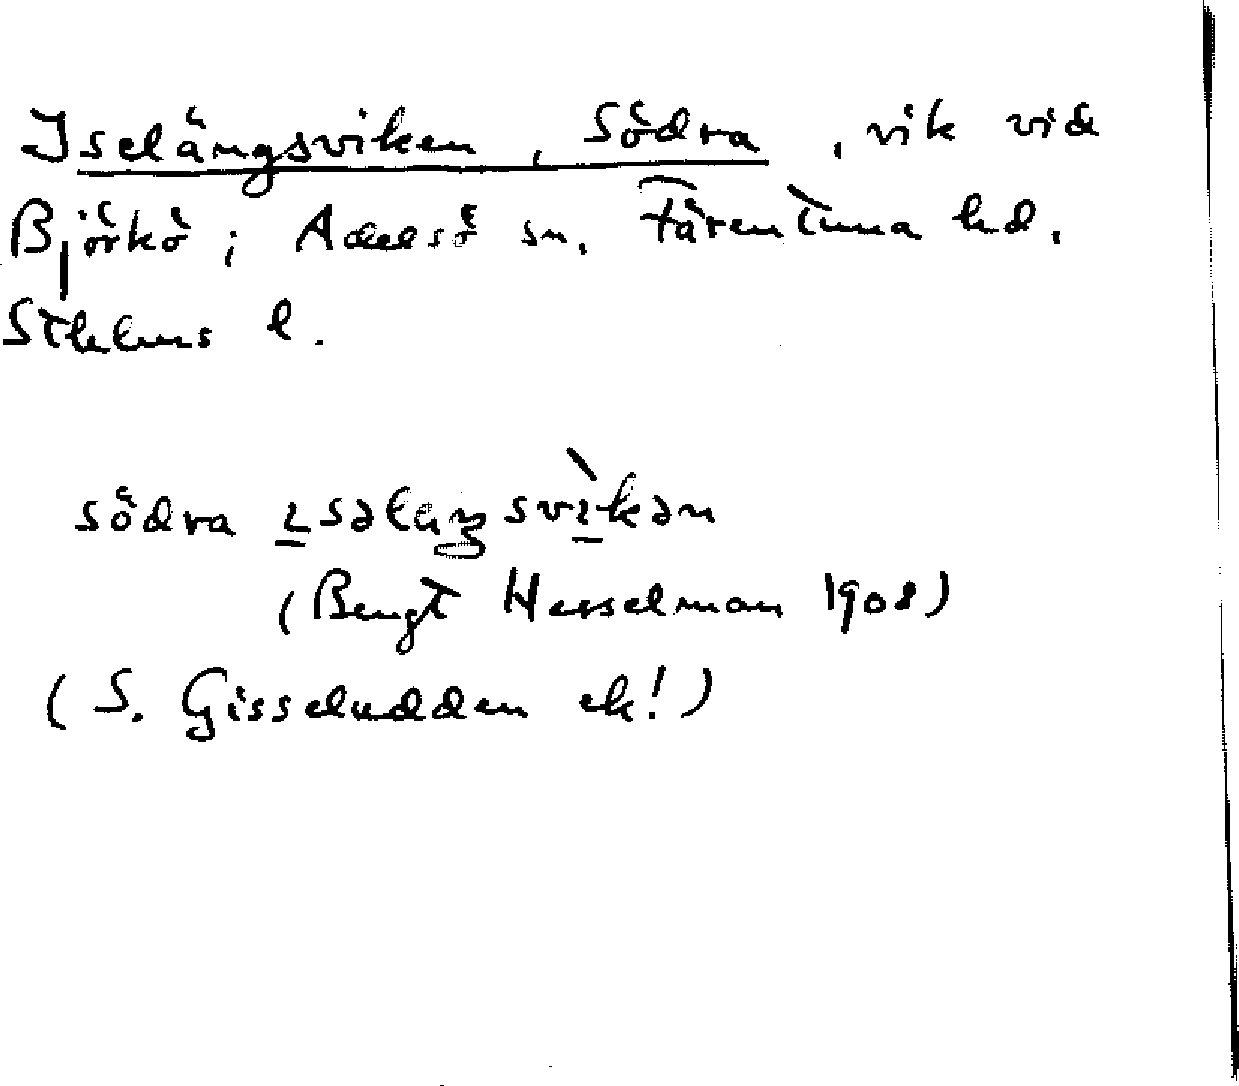 Iselängsviken, Södra, vik vid
Björkö i Adelsö sn, Färentuna hd,
Sthlms l.
södra
(Bengt Hesselman 1908)
(S. Gisseludden ek!)